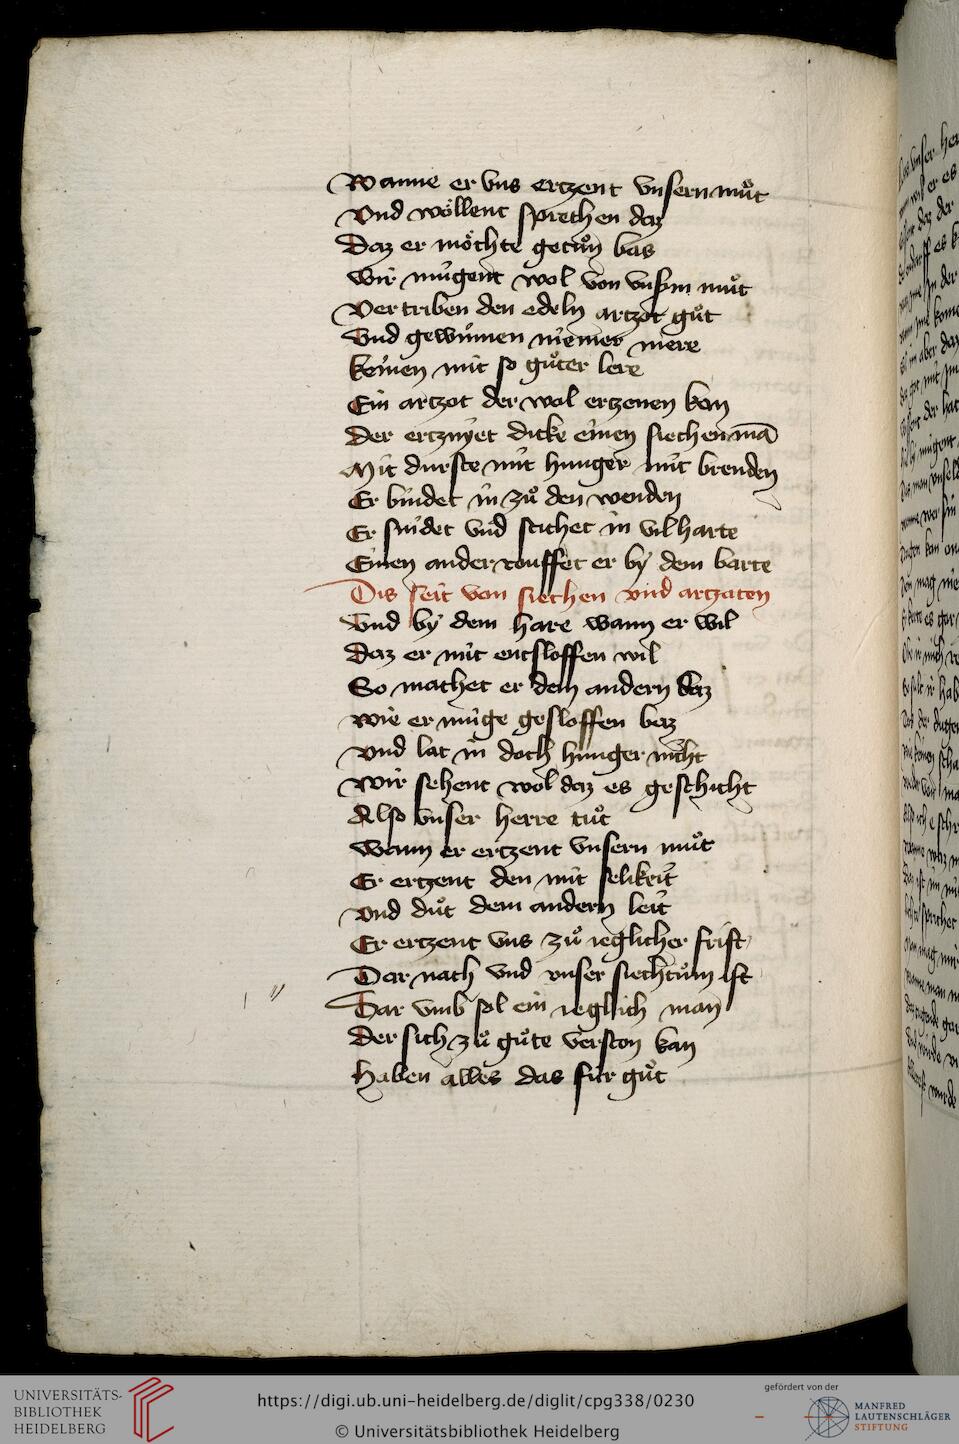 Wanne er vns ertzent vnsern muͦt
Vnd woͤllent sprechen daz
Daz er moͤchte getuͦn bas
Wir mugent wol von vnsm muͦt
Vertriben den edeln artzot guͦt
Vnd gewinnen niemer mere
Keinen mit so guͦter lere
Ein artzot der wol ertzenen kan
Der ertznyet dicke einen siechen mā
Mit durste mit hunger mit brenden
Er bindet in zuͦ den wenden
Er snidet vnd stichet in vil harte
Einen ander rouffet er by dem barte
Dis seit von siechen vnd artzaten
Vnd by dem hare wann er wil
Daz er nit entsloffen wil
So machet er dem andern daz
Wie er muge gesloffen baz
Vnd lat in doch hunger nicht
Wir sehent wol daz es geschicht
Also vnser herre tuͦt
Wann er ertzent vnsern muͦt
Er ertzent den mit selikeit
Vnd duͦt dem andern leit
Er ertzent vns zuͦ ieglicher frist
Dar nach vnd vnser siechtuͦm ist
Dar vmb sol ein ieglich man
Der sich zuͦ guͦte verston kan
Haben alles das fur guͦt
UNIVERSITÄTS-
BIBLIOTHEK
HEIDELBERG
https://digi.ub.uni-heidelberg.de/diglit/cpg338/0230
© Universitätsbibliothek Heidelberg
gefördert von der
MANFRED
LAUTENSCHLÄGER
STIFTUNG